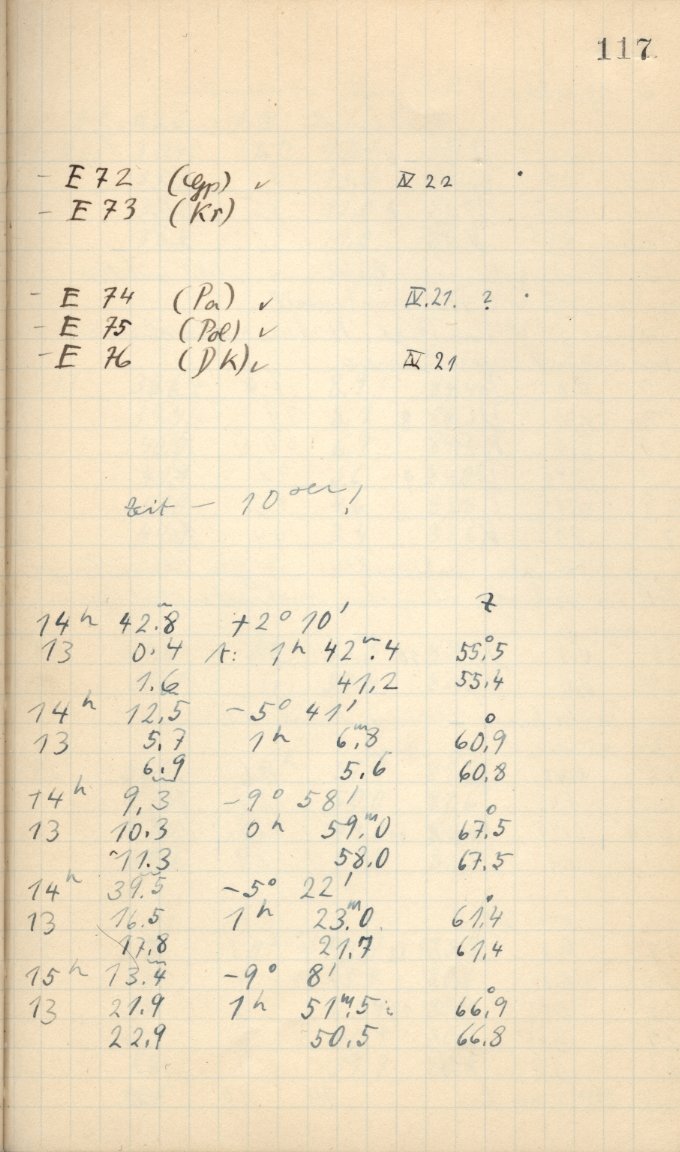 117
- E 72 (Gp) ✓ IV 22 .
- E 73 (Kr)
- E 74 (Pa) ✓ IV.21. ? .
- E 75 (Pol) ✓
- E 76 (DK) ✓ IV 21
Zeit - 10 sec!
z
14 h 42.m8 + 2° 10'
13 0.4 t: 1 h 42m.4 55.°5
1.6 41,2 55.4
14 h 12,5 - 5° 41'
13 5.7 1 h 6.m8 60.°9
6.9 5.6 60,8
14 h 9,3 - 9° 58'
13 10.3 0 h 59.m0 67.°5
11.3 58.0 67.5
14 h 39.5 - 5° 22'
13 16.5 1 h 23.m0 61.°4
17,8 21,7 61,4
15 h 13.m4 - 9° 8'
13 21.9 1 h 51m,5 66,°9
22,9 50,5 66.8